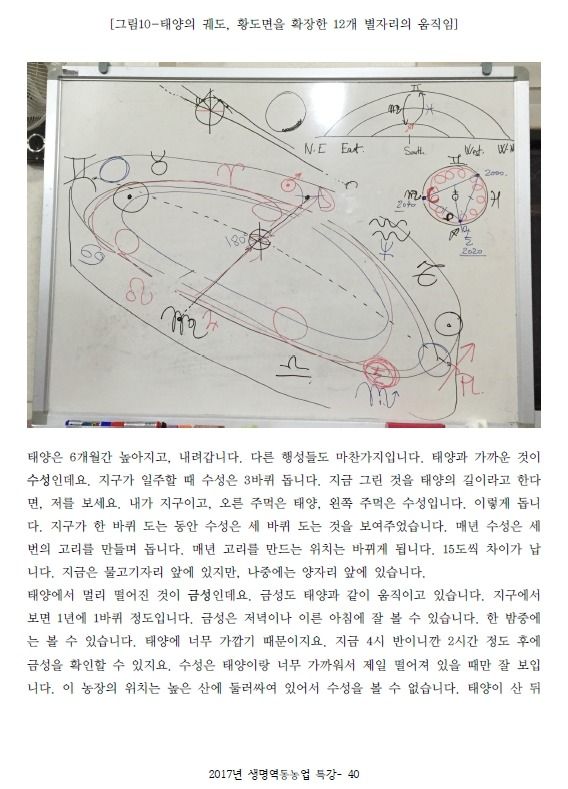 [그림10-태양의 궤도, 황도면을 확장한 12개 별자리의 움직임]
N.E East. South West.
2000.
2040
2020
180
PL
태양은 6개월간 높아지고, 내려갑니다. 다른 행성들도 마찬가지입니다. 태양과 가까운 것이
수성인데요. 지구가 일주할 때 수성은 3바퀴 돕니다. 지금 그린 것을 태양의 길이라고 한다
면, 저를 보세요. 내가 지구이고, 오른 주먹은 태양, 왼쪽 주먹은 수성입니다. 이렇게 돕니
다. 지구가 한 바퀴 도는 동안 수성은 세 바퀴 도는 것을 보여주었습니다. 매년 수성은 세
번의 고리를 만들며 돕니다. 매년 고리를 만드는 위치는 바뀌게 됩니다. 15도씩 차이가 납
니다. 지금은 물고기자리 앞에 있지만, 나중에는 양자리 앞에 있습니다.
태양에서 멀리 떨어진 것이 금성인데요. 금성도 태양과 같이 움직이고 있습니다. 지구에서
보면 1년에 1바퀴 정도입니다. 금성은 저녁이나 이른 아침에 잘 볼 수 있습니다. 한 밤중에
는 볼 수 있습니다. 태양에 너무 가깝기 때문이지요. 지금 4시 반이니깐 2시간 정도 후에
금성을 확인할 수 있지요. 수성은 태양이랑 너무 가까워서 제일 떨어져 있을 때만 잘 보입
니다. 이 농장의 위치는 높은 산에 둘러싸여 있어서 수성을 볼 수 없습니다. 태양이 산 뒤
2017년 생명역동농업 특강- 40